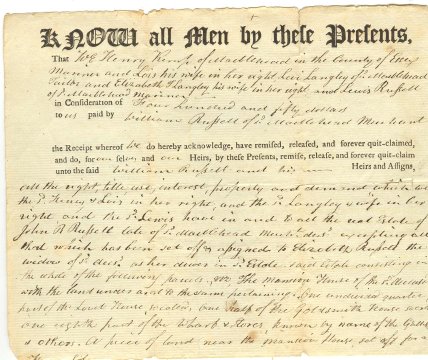 KNOW all Men by these Presents,
That We Henry Kemp of Marblehead in the County of Essex
Mariner and Lois his wife in her right Levi Langley of Sd Marblehead
Tailor and Elizabeth T Langley his wife in her right and Lewis Russell
of Sd Marblehead Mariner
in Consideration of Four Hundred and fifty dollars
to us paid by William Russell of Sd Marblehead Merchant
the Receipt whereof we do hereby acknowledge, have remised, released, and forever quit-claimed,
and do, for our selves and our Heirs, by these Presents, remise, release, and forever quit-claim
unto the said William Russell and his Heirs and Assigns,
all the right, title use, interest, property and demand which we
the Sd Henry & Lois in her right, and the Sd Langley & wife in her
right and the Sd Lewis have in and to all the real Estate of
John R Russell late of Sd Marblehead excepting all
that which has been set off & assigned to Elizabeth Russell the
widow of Sd as her dower in Sd Estate said Estate consisting in
the whole of the following parcels, The Mansion House of the Sd deceased
with the land under and to the same pertaining. One undivided quarter
part of the House so called, one half of the Goldsmith House so called
One eighth part of the Wharf & Stores, known by name of the
& others. A piece of land near the Mansion House set off for a